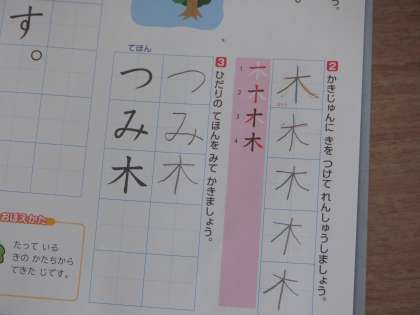 う。
❷ かきじゅんに きを つけて れんしゅうしましょう。
木
木
木
木
木
1 一
2 十
3 才
4 木
❸ ひだりの てほんを みて かきましょう。
つみ木
てほん
つみ木
す。
おぼえかた
たって いる
きの かたちから
できた じです。